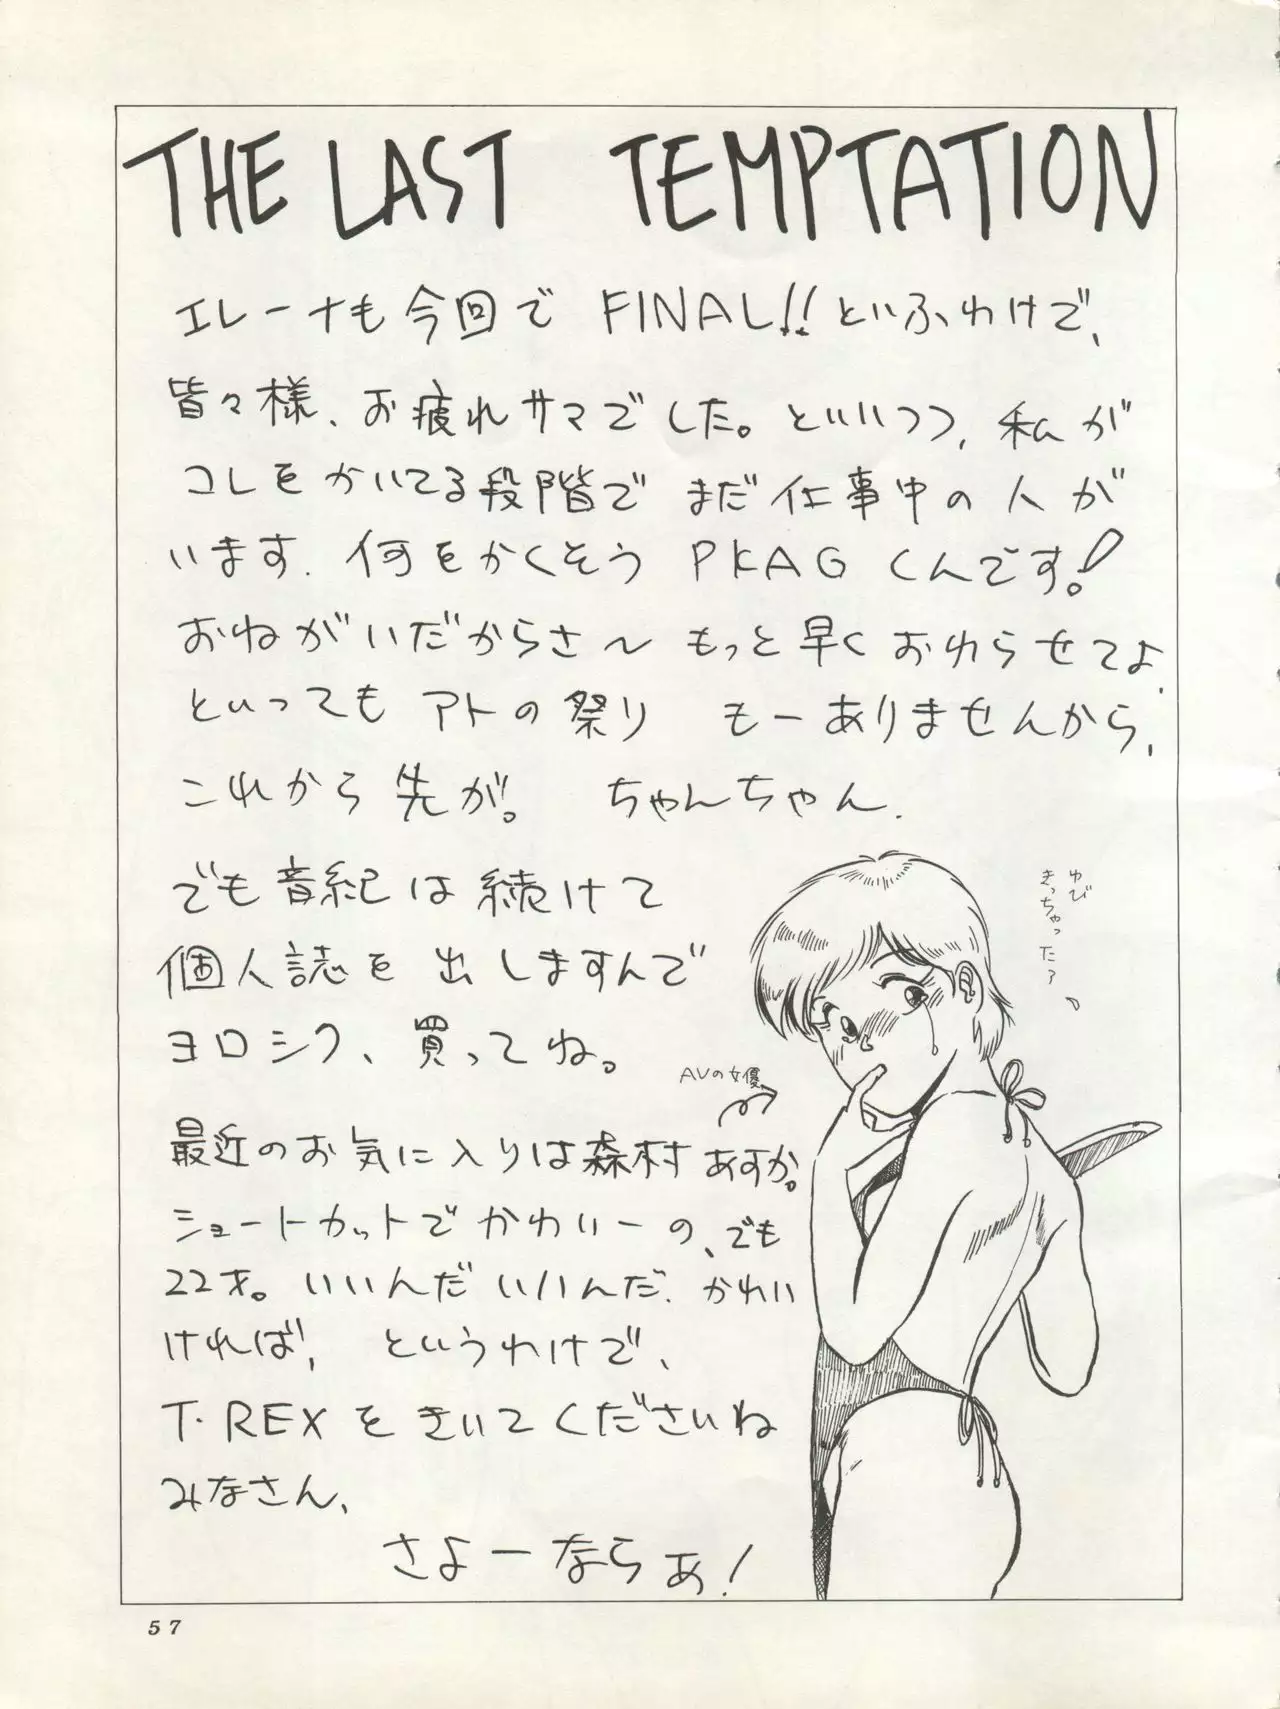 THE LAST TEMPTATION
エレーナも今回で FINAL!! といふわけで、
皆々様、お疲れサマでした。といいつつ、私が
コレをかいてる段階で まだ仕事中の人が
います. 何をかくそう PKAG くんです!
おねがいだからさ～ もっと早くおわらせてよ.
といってもアトの祭り もーありませんから、
これから先が。 ちゃんちゃん.
でも音紀は続けて
個人誌を出しますんで
ヨロシク、買ってね。
AVの女優
最近のお気に入りは森村あすか。
ショートカットでかわいーの、でも
22才。いいんだいいんだ. かわい
ければ、 というわけで、
T・REXをきいてくださいね
みなさん、
さよーならぁ!
ゆび
きっちゃったァ
57